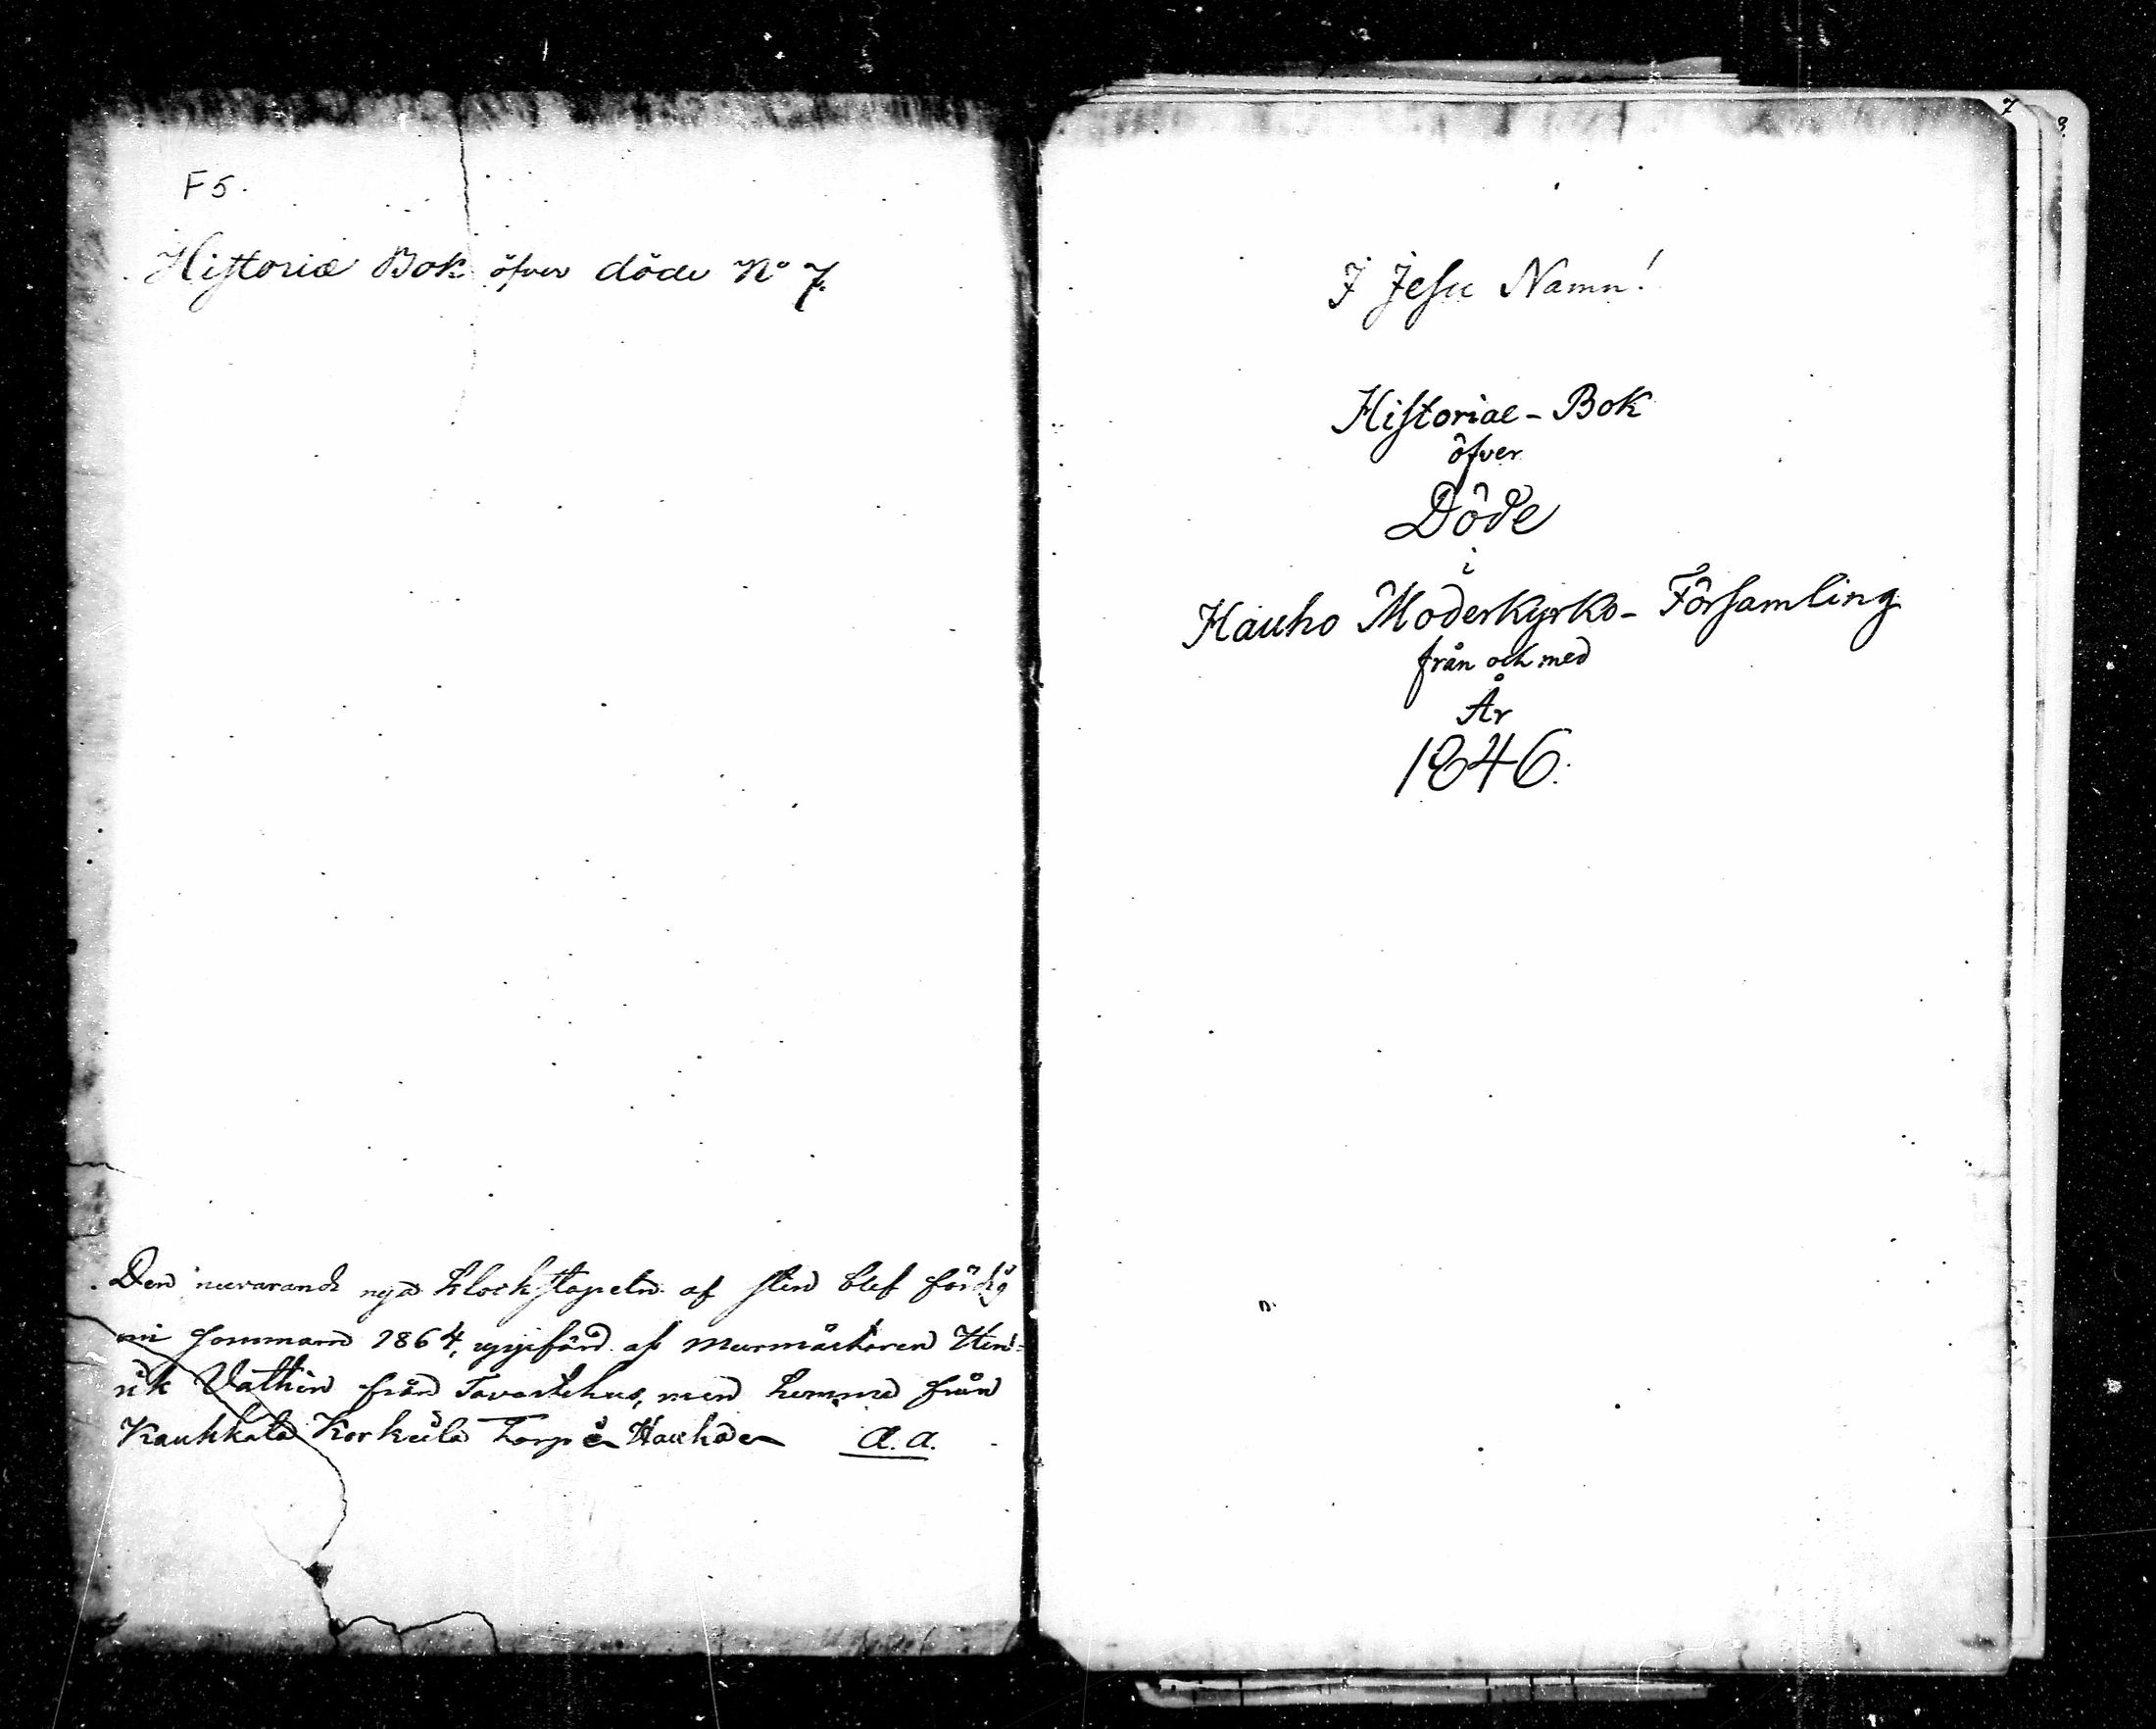 F 5.
Historiæ Bok öfver döde No 7.
Den nuvarande nya klockstapeln af sten blef färdig
om sommaren 1864, uppförd af Murmästaren Hen=
rik Vathén från Tavastehus, men hemma från
Kaukkala Korkeila Torp i Hauho A. A.
7
8
I Jesu Namn!
Historiae-Bok
öfver
Döde
i
Hauho Moderkyrko-Församling
från och med
År
1846.